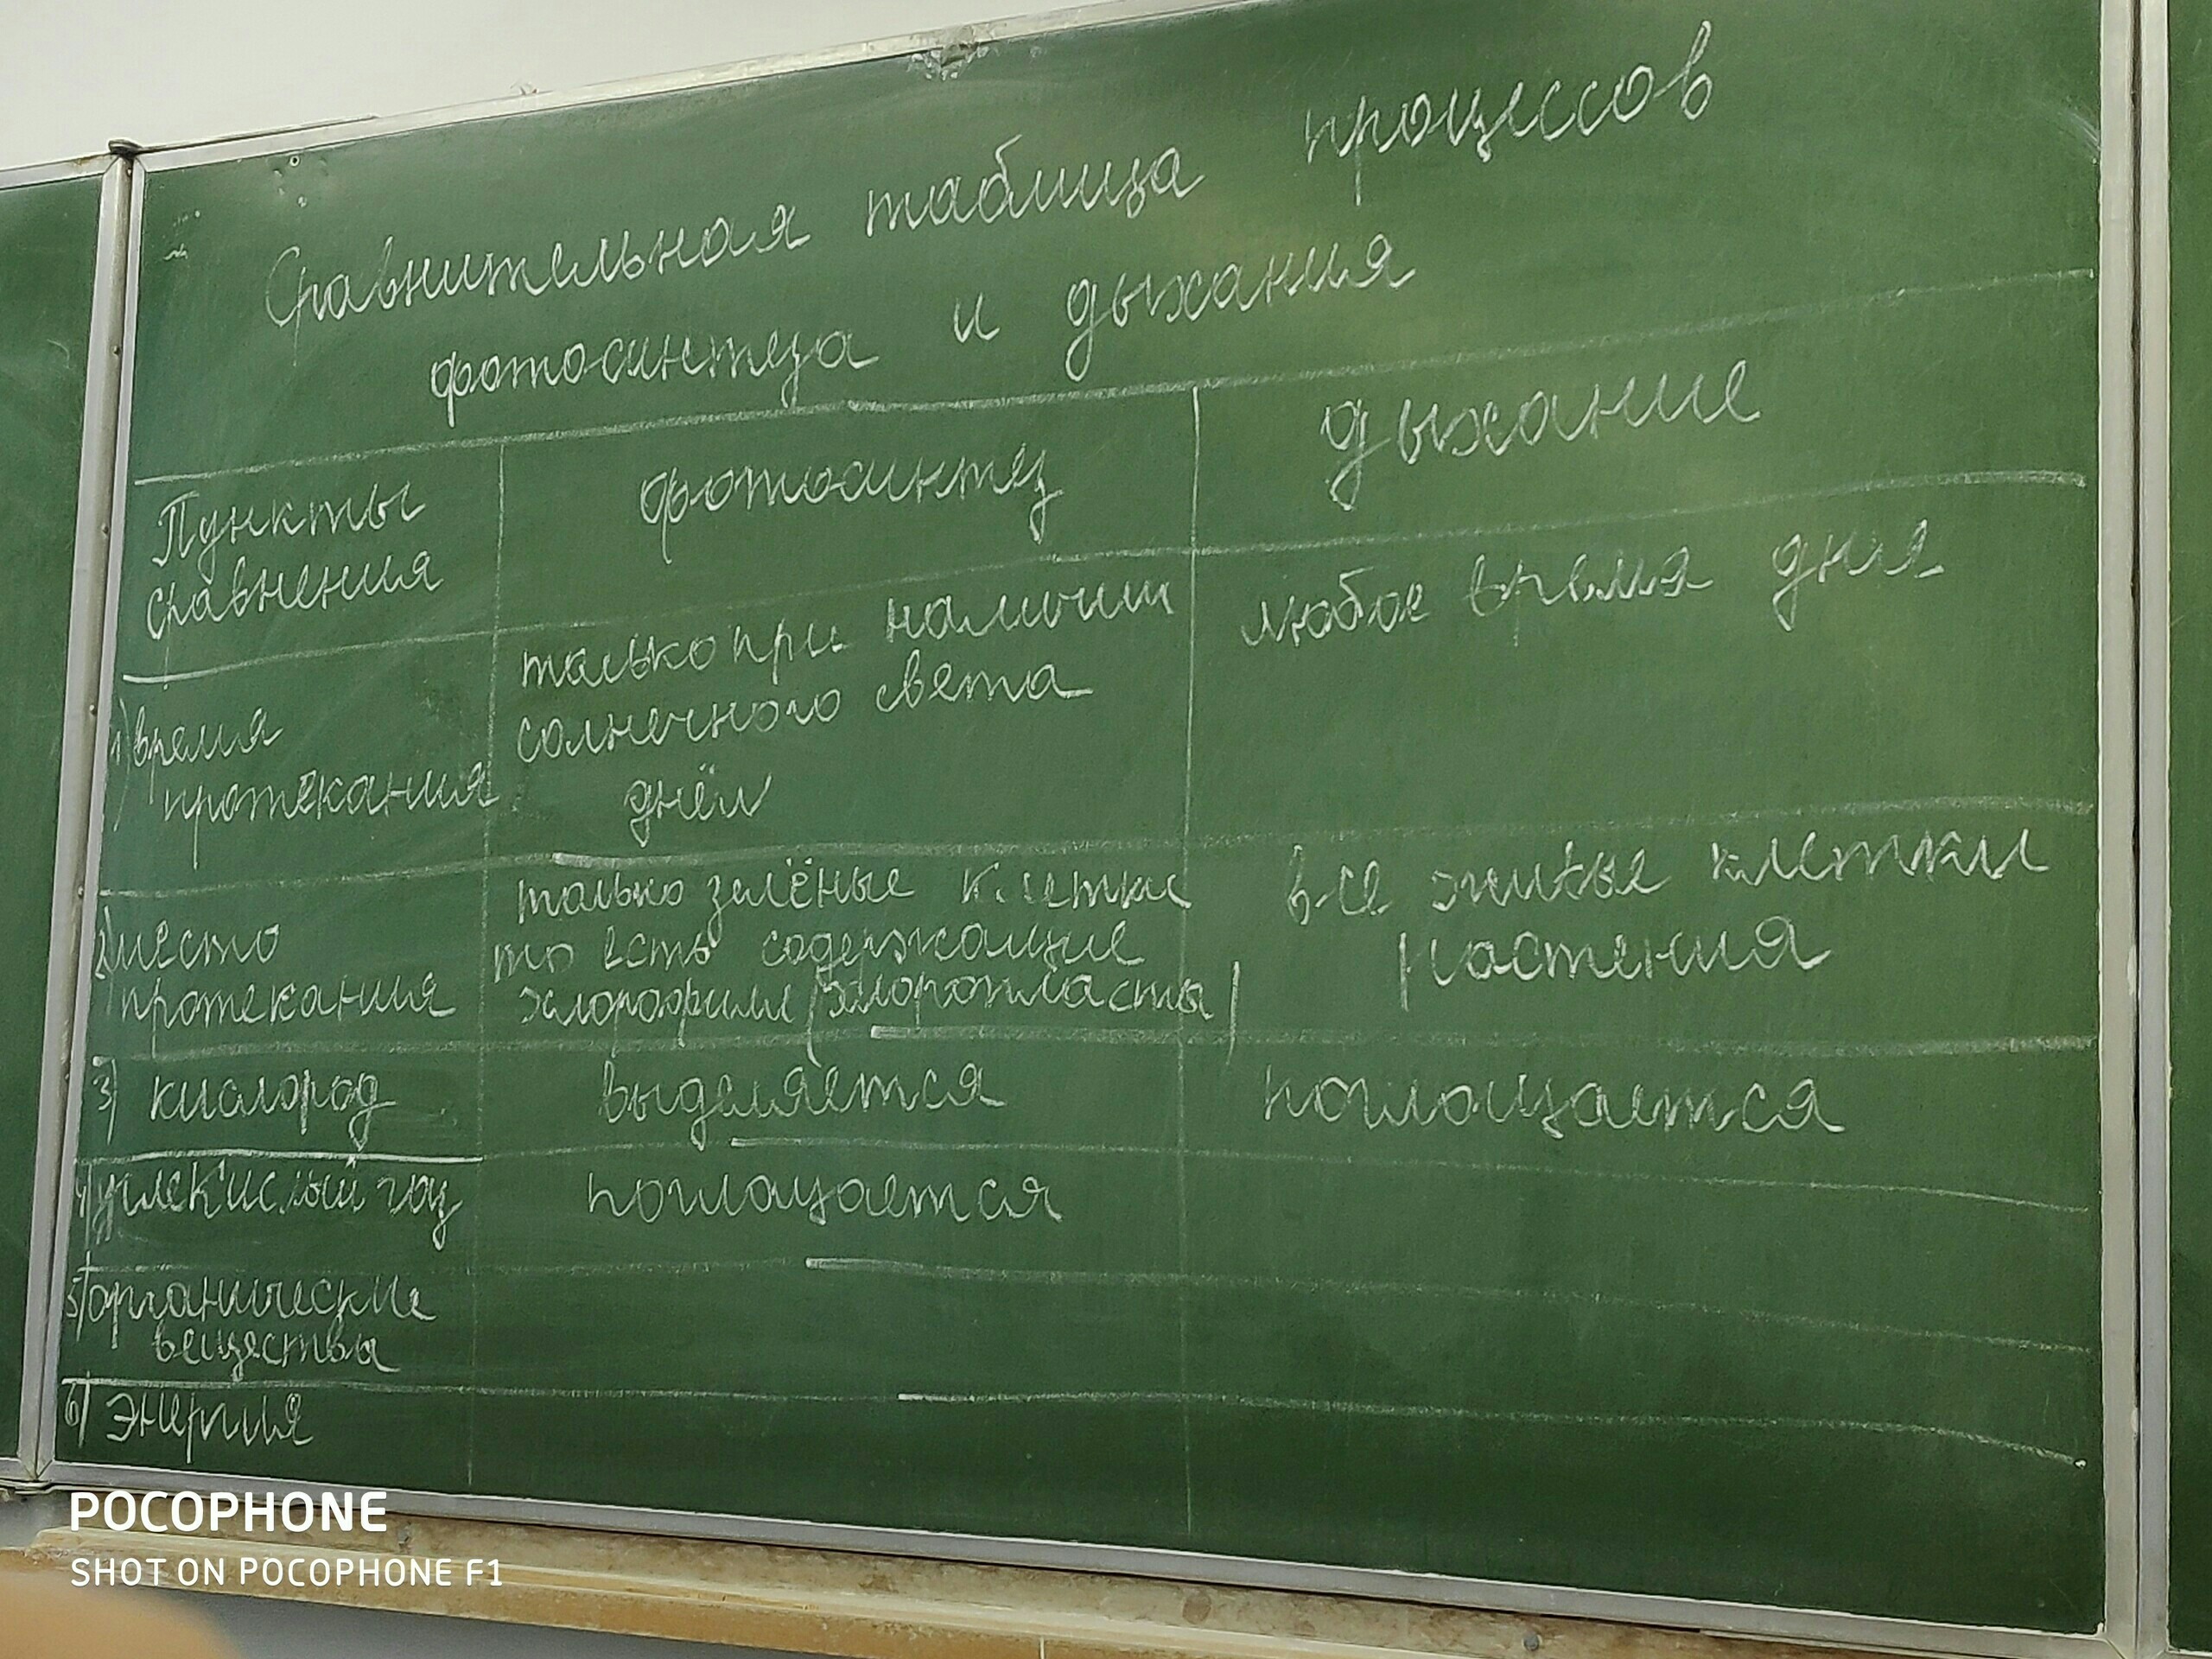 Сравнительная таблица процессов
фотосинтеза и дыхания
Пункты
сравнения
фотосинтез
дыхание
1) время
протекания
только при наличии
солнечного света
днём
любое время дня
2) место
протекания
только зелёные клетки
то есть содержащие
хлорофилл /хлоропласты/
все живые клетки
растения
3) кислород
выделяется
поглощается
4) углекислый газ
поглощается
5) органические
вещества
6) энергия
POCOPHONE
SHOT ON POCOPHONE F1